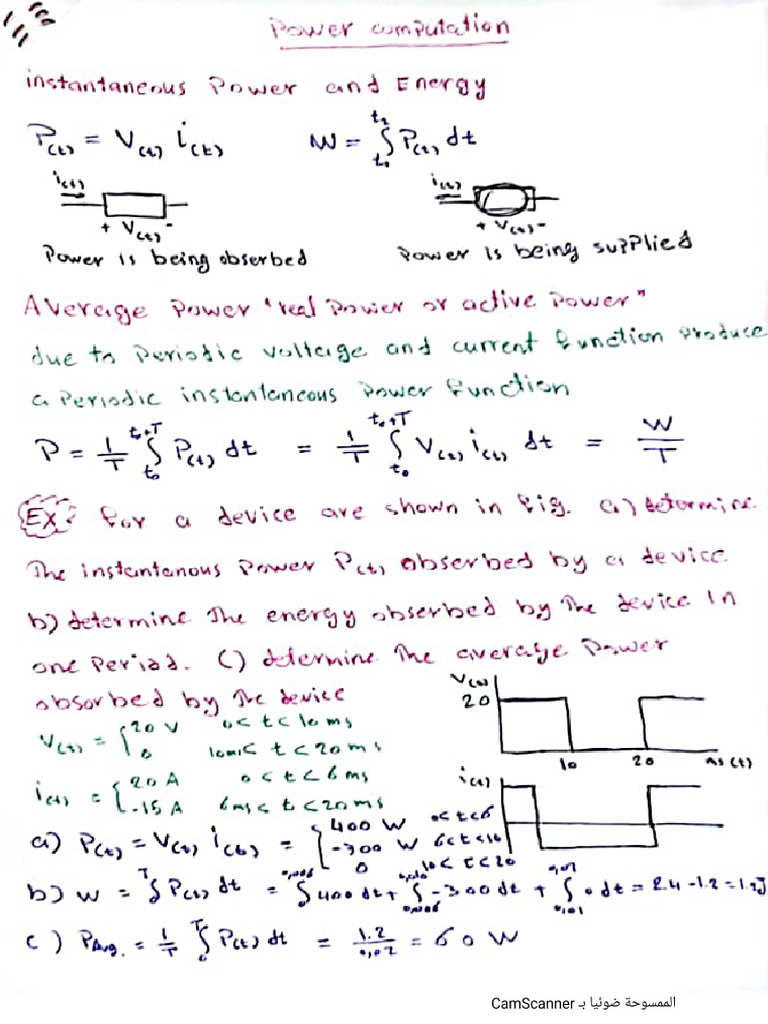 Power computation
instantaneous Power and Energy
P(t) = V(t) i(t)    W = ∫_{t₀}^{t₂} P(t) dt
i(t)    i(t)
+ V(t) -    + V(t) -
Power is being observed    Power is being supplied
Average Power "real Power or active Power"
due to Periodic voltage and current function produce
a Periodic instantaneous Power function
P = 1/T ∫_{t₀}^{t₀+T} P(t) dt = 1/T ∫_{t₀}^{t₀+T} V(t) i(t) dt = W/T
Ex: for a device are shown in fig. a) determine
The instantenous Power P(t) observed by a device
b) determine The energy observed by The device In
one Period. C) determine The average Power
absorbed by The device
V(t)
20
10    20    ms (t)
V(t) = { 20 V    0 < t < 10 ms
0    10ms < t < 20 ms
i(t)
i(t) = { 20 A    0 < t < 6 ms
-15 A    6ms < t < 20ms
a) P(t) = V(t) i(t) = { 400 W    0<t<6
-300 W    6<t<10
0    10< t<20
b) W = ∫^{T} P(t) dt = ∫^{0,006} 400 dt + ∫_{0,006}^{0,010} -300 dt + ∫_{0,01}^{0,02} 0 dt = 2.4 -1.2 = 1.2J
c) PAvg. = 1/T ∫_{0}^{T} P(t) dt = 1.2/0,02 = 60 W
الممسوحة ضوئيا بـ CamScanner